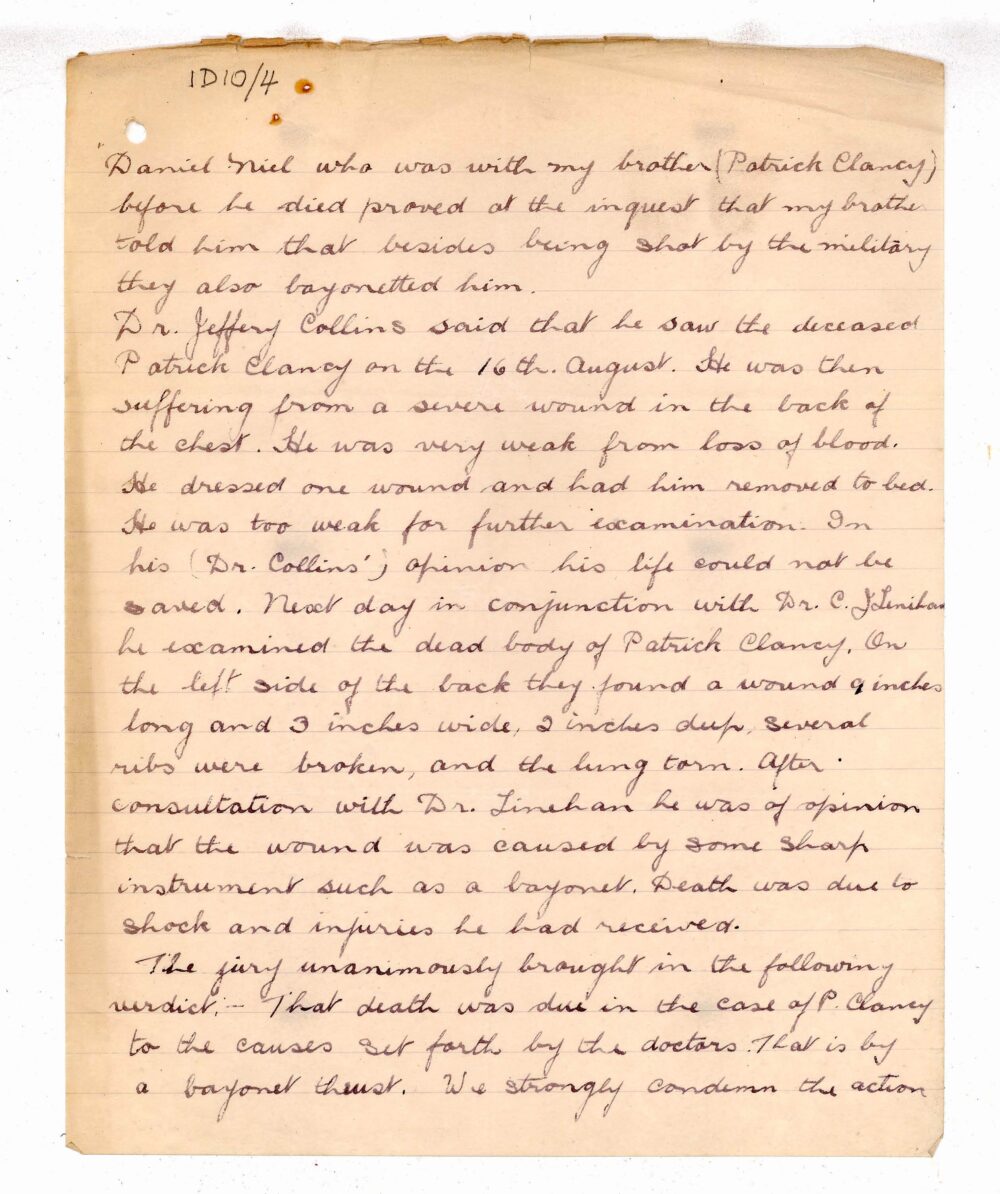 1D10/4
Daniel Niel who was with my brother (Patrick Clancy)
before he died proved at the inquest that my brothe
told him that besides being shot by the military
they also bayonetted him.
Dr. Jeffery Collins said that he saw the deceased
Patrick Clancy on the 16th. August. He was then
suffering from a severe wound in the back of
the chest. He was very weak from loss of blood.
He dressed one wound and had him removed to bed.
He was too weak for further examination. In
his (Dr. Collins') opinion his life could not be
saved. Next day in conjunction with Dr. C. J Lenihan
he examined the dead body of Patrick Clancy. On
the left side of the back they found a wound 9 inches
long and 3 inches wide, 2 inches deep, several
ribs were broken, and the lung torn. After
consultation with Dr. Linehan he was of opinion
that the wound was caused by some sharp
instrument such as a bayonet. Death was due to
shock and injuries he had received.
The jury unanimously brought in the following
verdict:- That death was due in the case of P. Clancy
to the causes set forth by the doctors. That is by
a bayonet thrust. We strongly condemn the action